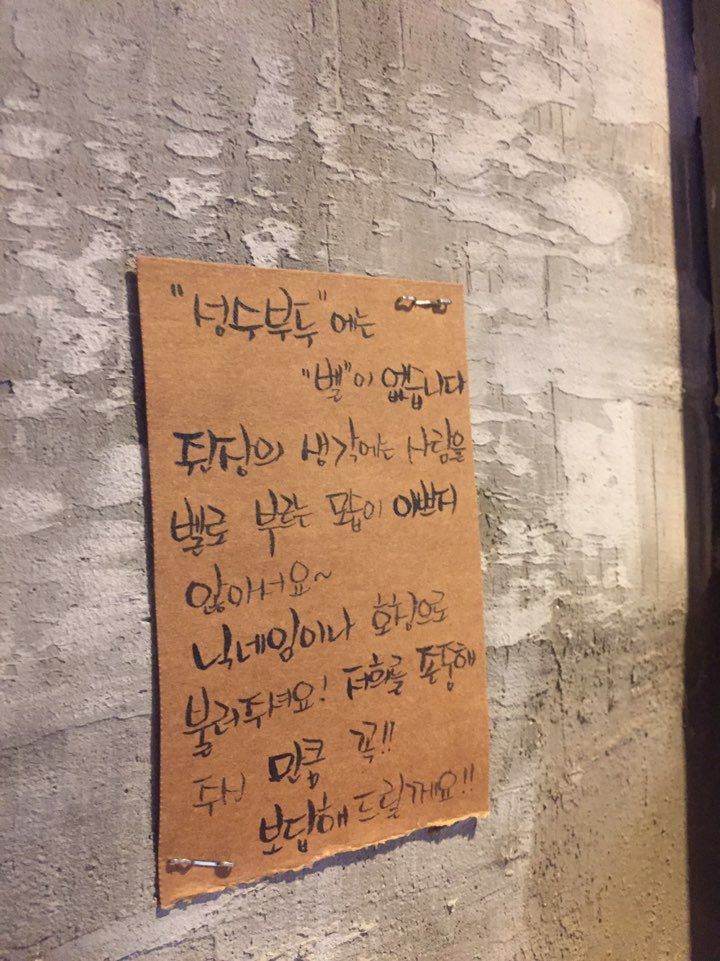 "성수부두"에는
"벨"이 없습니다
쥔장의 생각에는 사람을
벨로 부르는 모습이 이쁘지
않아서요~
닉네임이나 호칭으로
불러주셔요! 저희를 존중해
주신 만큼 꼭!!
보답해드릴게요!!